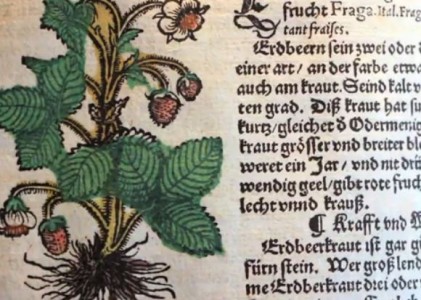 frucht Fraga. Ital. Frag
tant fraises.
Erdbeern sein zwei oder d
einer art / an der farbe etwa
auch am kraut. Seind kalt v
ten grad. Diß kraut hat su
kurtz / gleichet ð Odermenig
kraut grösser vnd breiter ble
weret ein Jar / vnd mit drü
wendig geel / gibt rote fruch
lecht vnnd krauß.
¶ Krafft vnd W
Erdbeerkraut ist gar gů
fürn stein. Wer groß lend
me Erdberkraut drei oder